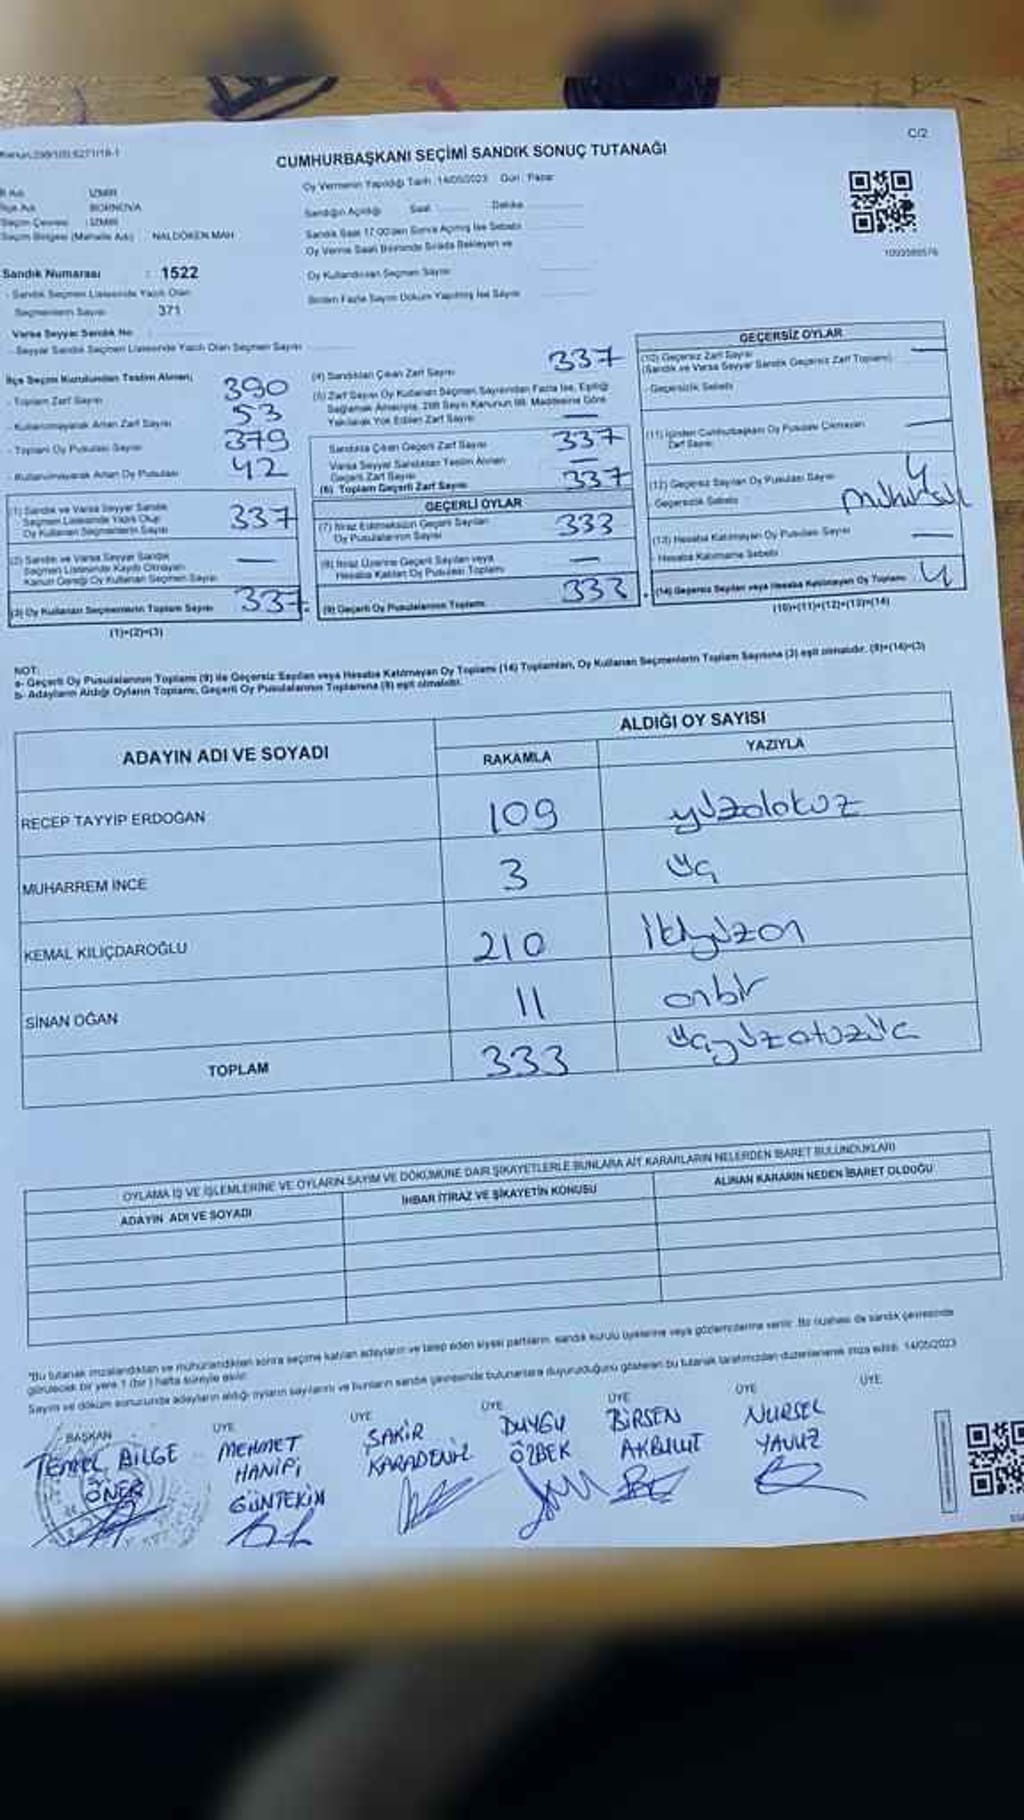 C/2
CUMHURBAŞKANI SEÇİMİ SANDIK SONUÇ TUTANAĞI
Oy Vermenin Yapıldığı Tarih :14/05/2023 Gün : Pazar
İZMİR
BORNOVA
Seçim Çevresi : İZMİR
Seçim Bölgesi (Mahalle Adı) : NALDÖKEN MAH
Sandığın Açıldığı Saat Dakika
Sandık Saat 17:00'den Sonra Açılmış İse Sebebi
Oy Verme Saati Bitiminde Sırada Bekleyen ve
Oy Kullandırılan Seçmen Sayısı
Birden Fazla Sayım Döküm Yapılmış İse Sayısı
Sandık Numarası : 1522
- Sandık Seçmen Listesinde Yazılı Olan
Seçmenlerin Sayısı 371
Varsa Seyyar Sandık No
- Seyyar Sandık Seçmen Listesinde Yazılı Olan Seçmen Sayısı
İlçe Seçim Kurulundan Teslim Alınan;
- Toplam Zarf Sayısı 390
- Kullanılmayarak Artan Zarf Sayısı 53
- Toplam Oy Pusulası Sayısı 379
- Kullanılmayarak Artan Oy Pusulası 42
(1) Sandık ve Varsa Seyyar Sandık
Seçmen Listesinde Yazılı Olup
Oy Kullanan Seçmenlerin Sayısı 337
(2) Sandık ve Varsa Seyyar Sandık
Seçmen Listesinde Kayıtlı Olmayan
Kanun Gereği Oy Kullanan Seçmen Sayısı —
(3) Oy Kullanan Seçmenlerin Toplam Sayısı 337
(1)+(2)=(3)
(4) Sandıktan Çıkan Zarf Sayısı 337
(5) Zarf Sayısı Oy Kullanan Seçmen Sayısından Fazla İse, Eşitliği
Sağlamak Amacıyla, 298 Sayılı Kanunun 98. Maddesine Göre
Yakılarak Yok Edilen Zarf Sayısı —
Sandıkta Çıkan Geçerli Zarf Sayısı 337
Varsa Seyyar Sandıktan Teslim Alınan
Geçerli Zarf Sayısı —
(6) Toplam Geçerli Zarf Sayısı 337
GEÇERLİ OYLAR
(7) İtiraz Edilmeksizin Geçerli Sayılan
Oy Pusulalarının Sayısı 333
(8) İtiraz Üzerine Geçerli Sayılan veya
Hesaba Katılan Oy Pusulası Toplamı —
(9) Geçerli Oy Pusulalarının Toplamı 333
GEÇERSİZ OYLAR
(10) Geçersiz Zarf Sayısı —
(Sandık ve Varsa Seyyar Sandık Geçersiz Zarf Toplamı)
- Geçersizlik Sebebi
(11) İçinden Cumhurbaşkanı Oy Pusulası Çıkmayan
Zarf Sayısı —
(12) Geçersiz Sayılan Oy Pusulası Sayısı 4
- Geçersizlik Sebebi
(13) Hesaba Katılmayan Oy Pusulası Sayısı —
- Hesaba Katılmama Sebebi
(14) Geçersiz Sayılan veya Hesaba Katılmayan Oy Toplamı 4
(10)+(11)+(12)+(13)=(14)
NOT:
a- Geçerli Oy Pusulalarının Toplamı (9) ile Geçersiz Sayılan veya Hesaba Katılmayan Oy Toplamı (14) Toplamları, Oy Kullanan Seçmenlerin Toplam Sayısına (3) eşit olmalıdır. (9)+(14)=(3)
b- Adayların Aldığı Oyların Toplamı, Geçerli Oy Pusulalarının Toplamına (9) eşit olmalıdır.
ADAYIN ADI VE SOYADI
ALDIĞI OY SAYISI
RAKAMLA YAZIYLA
RECEP TAYYİP ERDOĞAN 109 yüzdokuz
MUHARREM İNCE 3 üç
KEMAL KILIÇDAROĞLU 210 ikiyüzon
SİNAN OĞAN 11 onbir
TOPLAM 333 üçyüzotuzüç
OYLAMA İŞ VE İŞLEMLERİNE VE OYLARIN SAYIM VE DÖKÜMÜNE DAİR ŞİKAYETLERLE BUNLARA AİT KARARLARIN NELERDEN İBARET BULUNDUKLARI
ADAYIN ADI VE SOYADI
İHBAR İTİRAZ VE ŞİKAYETİN KONUSU
ALINAN KARARIN NEDEN İBARET OLDUĞU
"Bu tutanak imzalandıktan ve mühürlendikten sonra seçime katılan adayların ve talep eden siyasi partilerin sandık kurulu üyelerine veya gözlemcilerine verilir. Bir nüshası da sandık çevresinde
görülecek bir yere 1 (bir) hafta süreyle asılır.
Sayım ve döküm sonucunda adayların aldığı oyların sayılarını ve bunların sandık çevresinde bulunanlara duyurulduğunu gösteren bu tutanak tarafımızdan düzenlenerek imza edildi. 14/05/2023
BAŞKAN ÜYE ÜYE ÜYE ÜYE ÜYE ÜYE
TEMEL BİLGE ÖNER
MEHMET HANİFİ GÜNTEKİN
ŞAKİR KARADENİZ
DUYGU ÖZBEK
BİRSEN AKBULUT
NURSEL YAVUZ